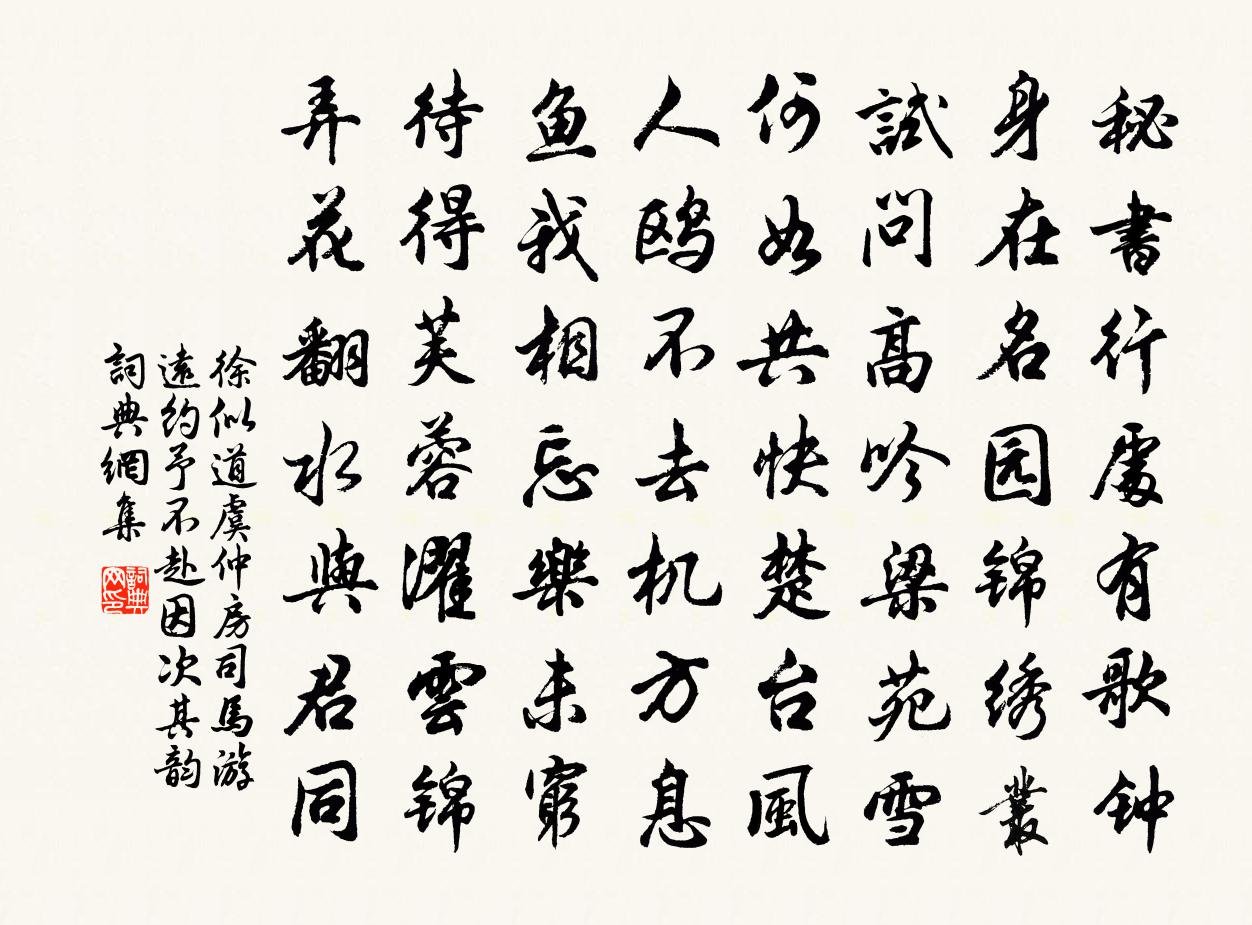 秘書行處有歌钟
身在名园锦绣叢
試問高吟梁苑雪
何如共快楚台風
人鸥不去机方息
鱼我相忘樂未窮
待得芙蓉濯雲錦
弄花翻水與君同
徐似道虞仲房司馬游
遠約予不赴因次其韵
詞典網集
詞典網印